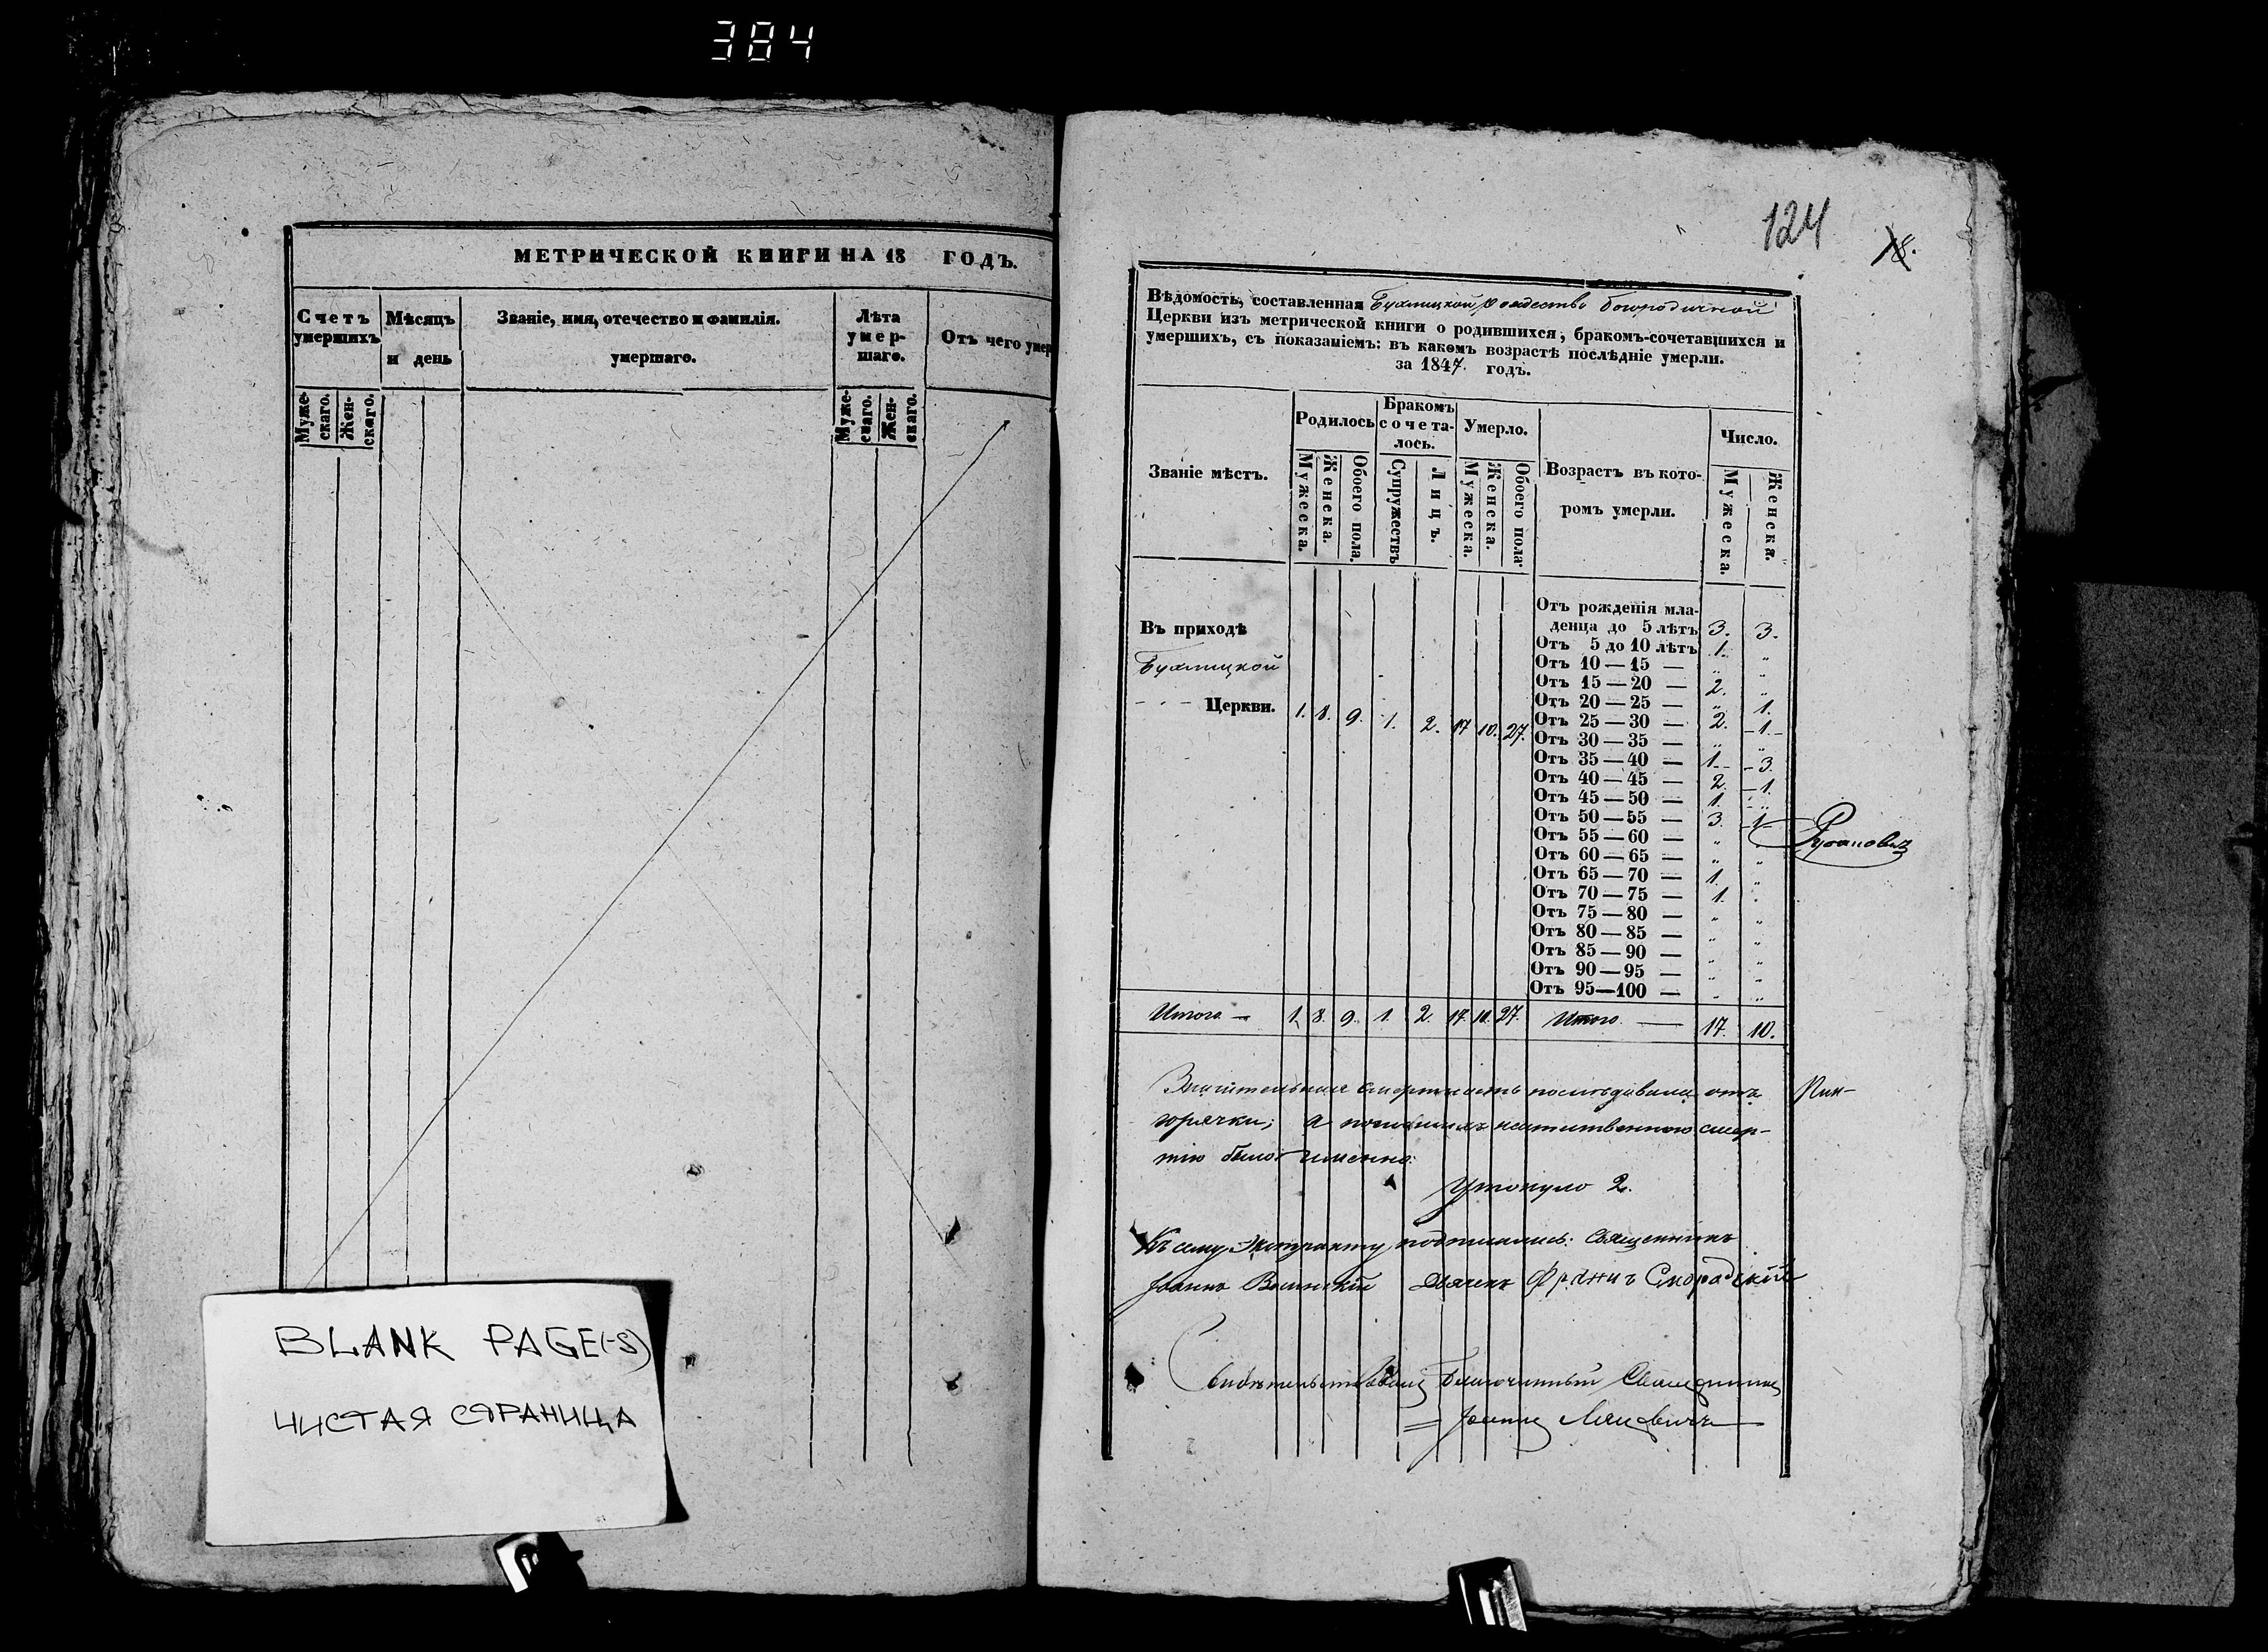 384
МЕТРИЧЕСКОЙ КНИГИ НА 18 ГОДЪ.
Счетъ умершихъ
Мѣсяцъ и день
Званіе, имя, отечество и фамилія.
умершаго.
Лѣта умер-
шаго.
Отъ чего умер
Муже-
скаго.
Жен-
скаго.
Муже-
скаго.
Жен-
скаго.
BLANK PAGE(-S)
ЧИСТАЯ СТРАНИЦА
124
18.
Вѣдомость, составленная Бухлицкой рождество богородичной
Церкви изъ метрической книги о родившихся, бракомъ-сочетавшихся и
умершихъ, съ показаніемъ: въ какомъ возрастѣ послѣдніе умерли.
за 1847. годъ.
Званіе мѣстъ.
Родилось
Бракомъ
сочета-
лось.
Умерло.
Возрастъ въ кото-
ромъ умерли.
Число.
Мужеска.
Женска.
Обоего пола.
Супружествъ
Лицъ.
Мужеска.
Женска.
Обоего пола
Мужеска.
Женска.
Въ приходѣ
Бухлицкой
Церкви. 1. 8. 9. 1. 2. 17 10. 27.
Отъ рожденія мла-
денца до 5 лѣтъ 3. 3.
Отъ 5 до 10 лѣтъ 1. „
Отъ 10 — 15 — „ „
Отъ 15 — 20 — 2. „
Отъ 20 — 25 — „ 1.
Отъ 25 — 30 — 2. 1.
Отъ 30 — 35 — „ „
Отъ 35 — 40 — 1. 3.
Отъ 40 — 45 — 2. 1.
Отъ 45 — 50 — 1. „
Отъ 50 — 55 — 3. 1
Отъ 55 — 60 — „ „
Отъ 60 — 65 — „ „
Отъ 65 — 70 — 1. „
Отъ 70 — 75 — 1. „
Отъ 75 — 80 — „ „
Отъ 80 — 85 — „ „
Отъ 85 — 90 — „ „
Отъ 90 — 95 — „ „
Отъ 95 — 100 — „ „
Итого — 1. 8. 9. 1. 2. 17. 10. 27. Итого — 17. 10.
Значительная смертность послѣдовала отъ
горячки; а неестественною смер-
тію было именно:
Утонуло 2.
Къ сему экстракту подписались: Священникъ
Іоаннъ Дьячекъ
Свидѣтельствовалъ Благочинный Священникъ
Іоаннъ